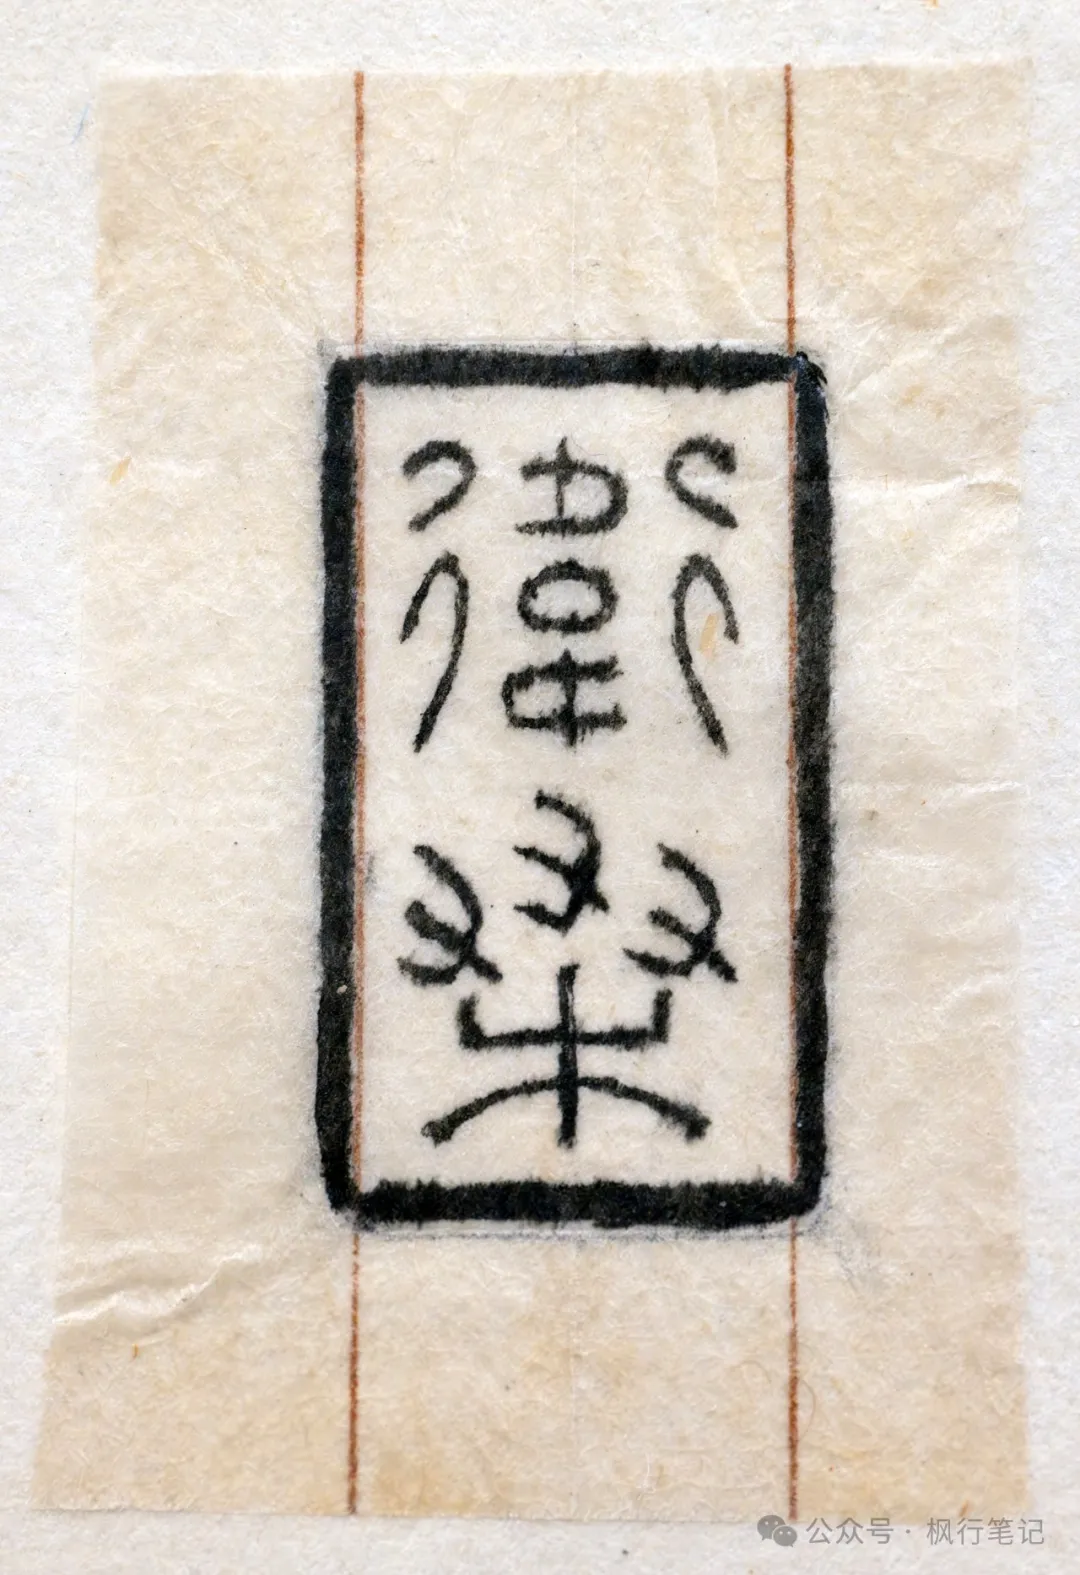 衛桑
公众号 · 枫行笔记